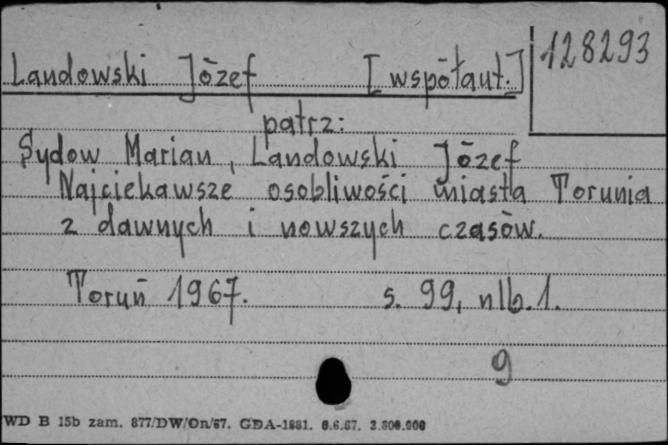 128293
Landowski Józef [współaut.]
patrz:
Sydow Marian, Landowski Józef
Najciekawsze osobliwości miasta Torunia
z dawnych i nowszych czasów.
Toruń 1967. s. 99, nlb. 1.
9
WD B 15b zam. 877/DW/On/67. GDA-1881. 6.6.67. 3.800.000